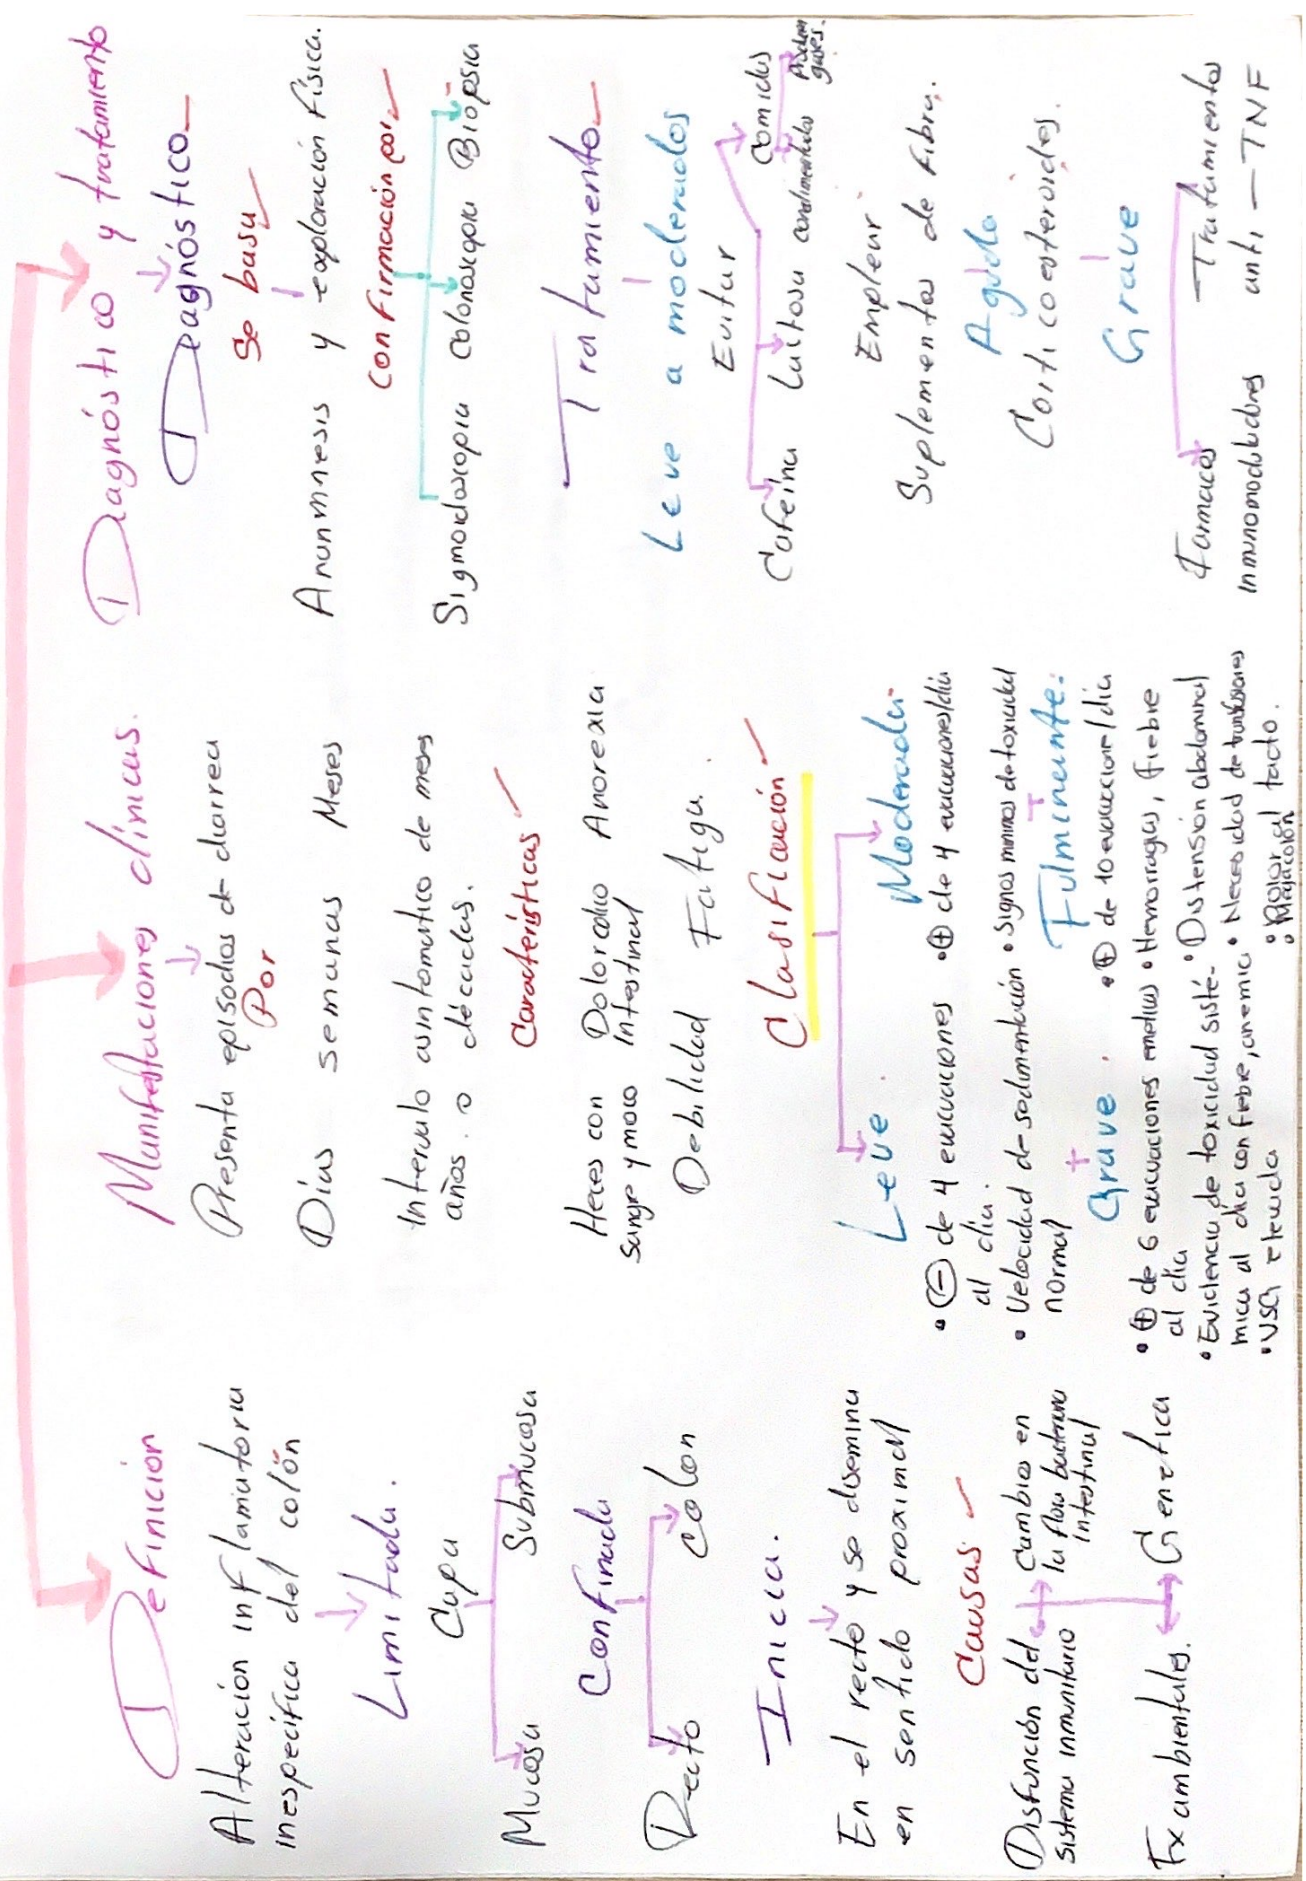 Definición
Alteración inflamatoria
inespecífica del colón
Limitada.
Capa
Mucosa Submucosa
Confinada
Recto colon
Inicia.
En el recto y se disemina
en sentido proximal
Causas
Disfunción del
sistema inmunitario
Cambios en
la flora bacteriana
intestinal
Fx ambientales.
Genetica
Manifestaciones clínicas.
Presenta episodios de diarrea
Por
Días semanas Meses
Intervalo asintomatico de meses
años. o décadas.
Características
Heces con
sangre y moco
Dolor cólico
intestinal
Anorexia
Debilidad Fatiga.
Clasificación
Leve
• (-) de 4 evacuaciones
al día.
• Velocidad de sedimentación
normal
Moderada
• (+) de 4 evacuaciones/día
• Signos minimos de toxicidad
Grave.
• (+) de 6 evacuaciones
al día
• Evidencia de toxicidad sisté-
mica al día con fiebre, anemia
• VSG elevada
Fulminante:
• (+) de 10 evacuacione/día
• Hemorragias, fiebre
• Distensión abdominal
• Necesidad de transfusiones
• Dolor al tacto.
•
Diagnóstico y tratamiento
Diagnóstico
Se basa
Anamnesis y exploración física.
Confirmación por
Sigmoidoscopia colonoscopia Biopsia
Tratamiento
Leve a moderados
Evitar
Cafeína Lactosa condimentados Comidas
Producen
gases.
Emplear
Suplementos de Fibra.
Aguda
Corticoesteroides.
Grave
Farmacos
inmunomoduladores
Tratamientos
anti-TNF